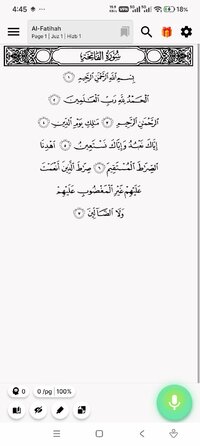 4:45
18%
Al-Fatihah
Page 1 | Juz 1 | Hizb 1
سُورَةُ الفَاتِحَةِ
بِسْمِ اللَّهِ الرَّحْمَٰنِ الرَّحِيمِ ١
الْحَمْدُ لِلَّهِ رَبِّ الْعَالَمِينَ ٢
الرَّحْمَٰنِ الرَّحِيمِ ٣ مَالِكِ يَوْمِ الدِّينِ ٤
إِيَّاكَ نَعْبُدُ وَإِيَّاكَ نَسْتَعِينُ ٥ اهْدِنَا
الصِّرَاطَ الْمُسْتَقِيمَ ٦ صِرَاطَ الَّذِينَ أَنْعَمْتَ
عَلَيْهِمْ غَيْرِ الْمَغْضُوبِ عَلَيْهِمْ
وَلَا الضَّالِّينَ ٧
0
0 /pg
100%